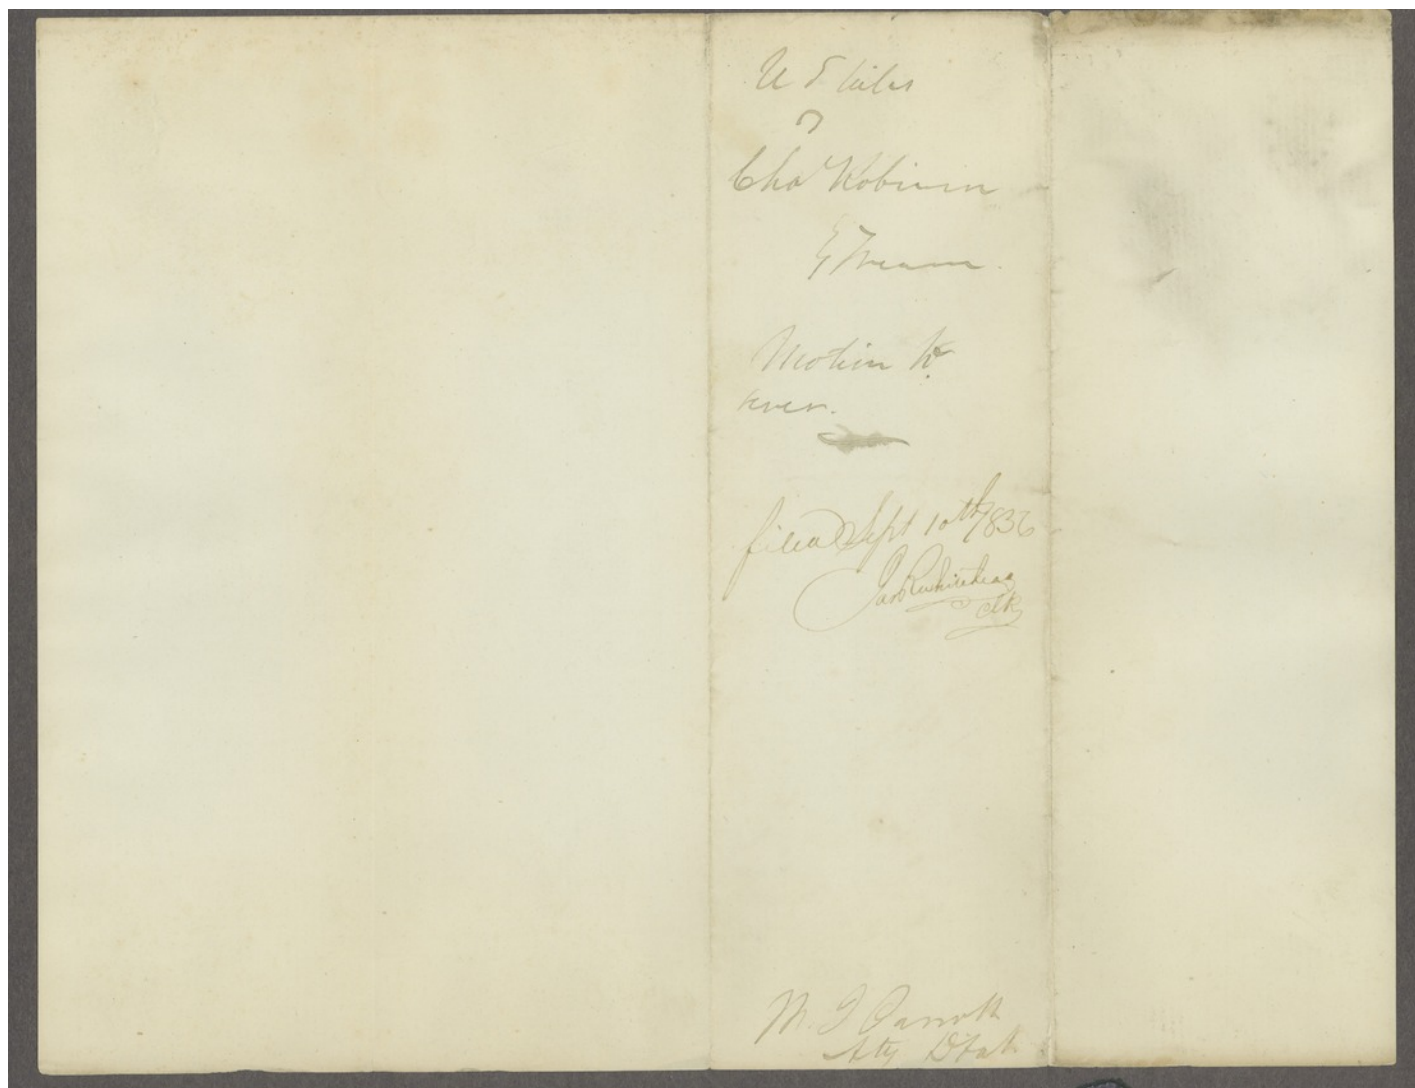 U States
v
Chas Robinson
Treason.
Motion to
sever.
filed Sept 10th 1856
Jas R Whitehead
Clk
M. J. Parrott
Atty Dfdt